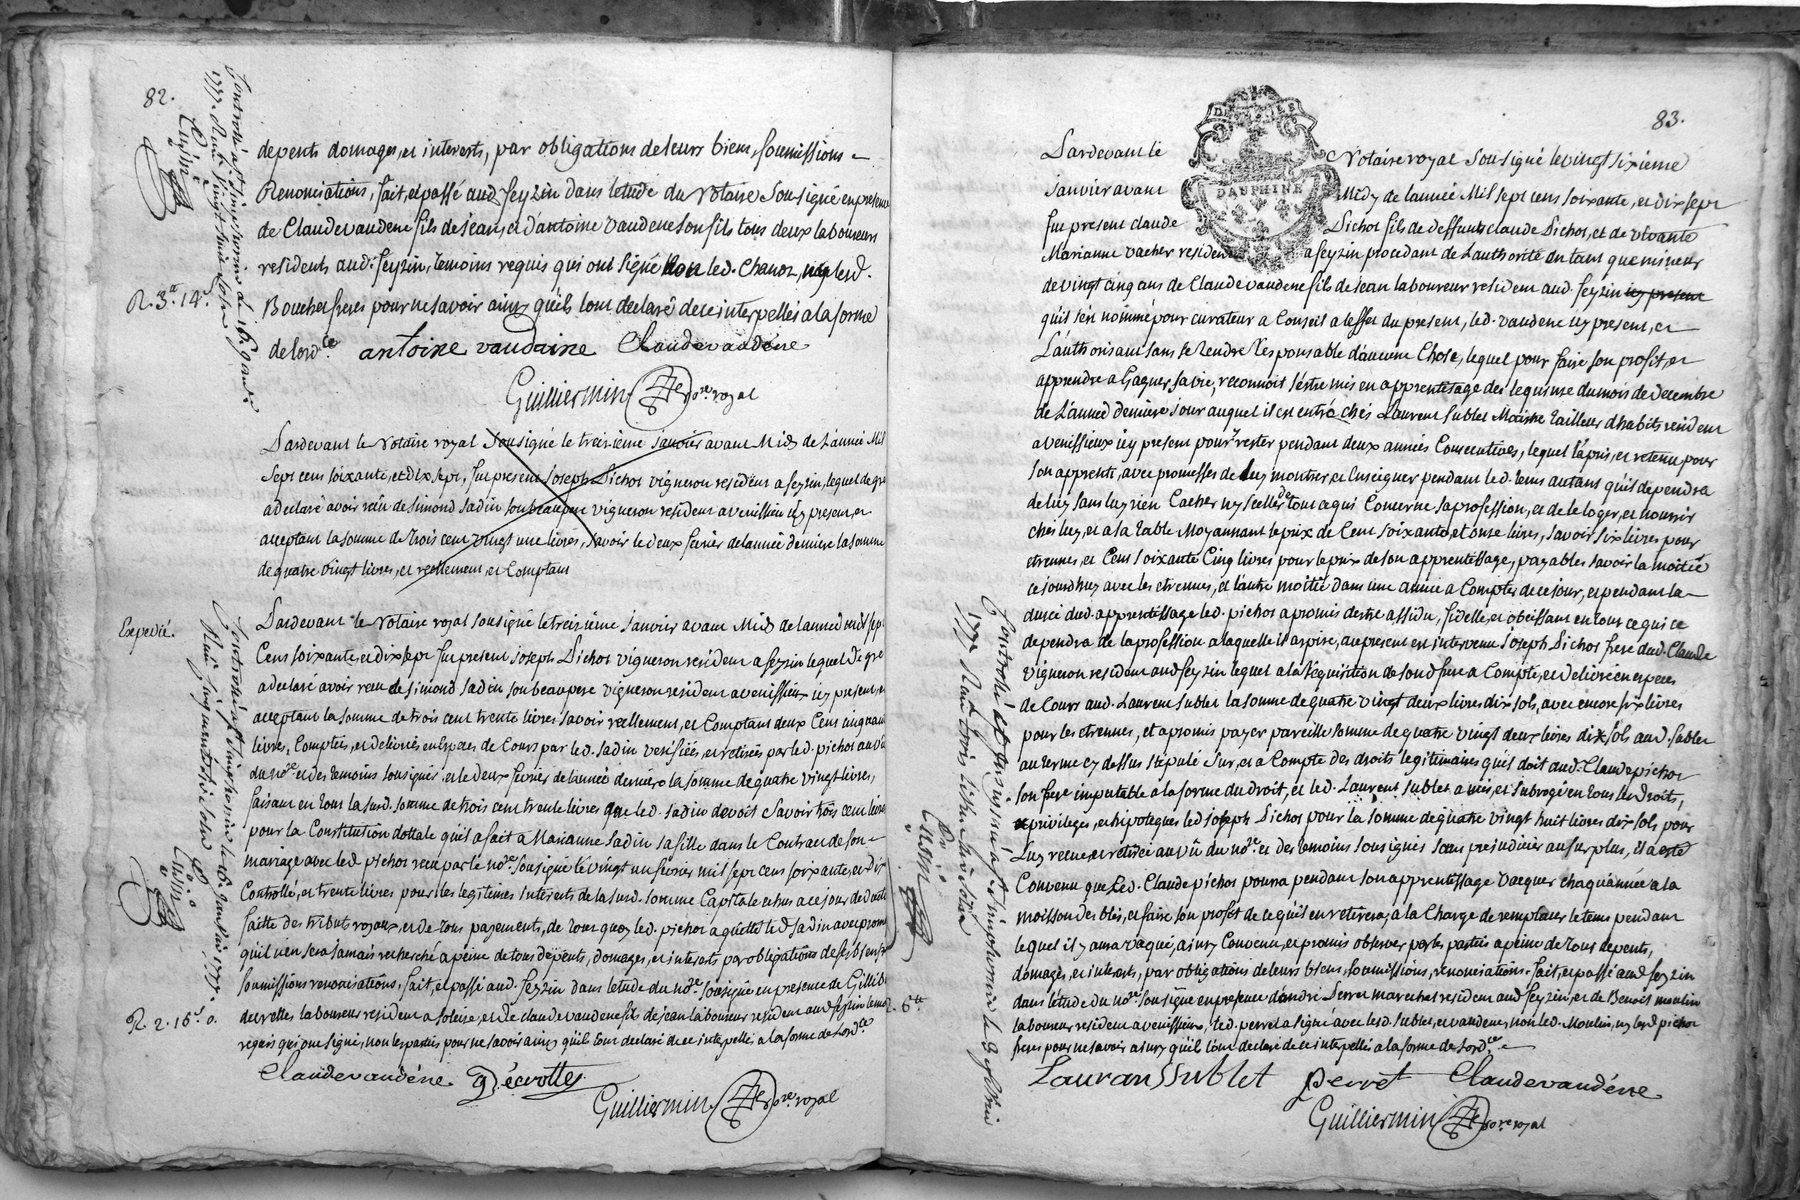 82.
depents domages, et interests, par obligations de leurs biens, soumissions
Renonciations, fait, et passé aud. feyzin dans letude du Notaire Sousigné en presence
de Claude vaudene fils de jean, et d'antoine vaudene son fils tous deux laboureurs
residents aud. feyzin, temoins requis qui ont signé non led. Chanoz, ny lesd.
Boucher freres pour ne savoir ainsy qu'ils l'ont declaré de ce interpellés a la forme
de lord.ce antoine vaudaine Claudevaudéne
Guilliermin no.re royal
R. 3.# 14.s
Pardevant le Notaire royal Sousigné le treisieme janvier avant Midy de L'année Mil
Sept cens soixante, et dix sept, fut present Joseph Pichot vigneron resident a feyzin, lequel de gre
a declaré avoir reçu de simond sadin son beaupere vigneron resident a venissieu icy present, et
acceptant la somme de trois cent vingt une livres, savoir le deux fevrier de lannée derniere la somme
de quatre vingt livres, et reellement, et Comptant
Expedié.
Pardevant le Notaire royal sousigné le treisieme janvier avant Midy de lannée mil sept
Cens soixante, et dix sept fut present joseph Pichot vigneron resident a feyzin lequel de gre
a declaré avoir reçu de simond sadin son beaupere vigneron resident a venissieux icy present, et
acceptant la somme de trois cent trente livres savoir reellement, et Comptant deux Cens cinquante
livres, Comptées, et delivrées en Especes de Cours par led. sadin verifiées, et retirées par led. pichot au vû
du no.re et des temoins sousignés, et le deux fevrier de lannée derniere la somme de quatre vingt livres,
faisant en tout la susd. somme de trois cent trente livres que led. sadin devoit savoir trois cent livres
pour la Constitution dottale qu'il a fait a Marianne sadin sa fille dans le Contrat de son
mariage avec led. pichot reçu par le no.re sousigné le vingt un fevrier mil sept cens soixante, et dix
Controllé, et trente livres pour les legitimes interets de la susd. somme Capitale echus a ce jour deduction
faitte des tributs royaux, et de tous payements, de tout quoy led. pichot a quitté led. sadin avec promesse
qu'il n'en sera jamais recherché a peine de tous depents, domages, et interests par obligations de ses biens
soumissions renonciations, fait, et passé aud. feyzin dans letude du no.re sousigné en presence de
decrotte, laboureur resident a soleise, et de claude vaudene fils de jean laboureur resident aud. feyzin temoins
requis qui ont signé, non les parties pour ne savoir ainsy qu'ils l'ont declaré de ce interpellés a la forme de Lord.ce
R. 2. 16.s 0.
Claudevaudéne Décrotte
Guilliermin no.re royal
83.
DAUPHINE
Pardevant le Notaire royal sousigné le vingt sixieme
janvier avant Midy de lannée Mil sept cens soixante, et dix sept
fut present claude Pichot fils de deffunt claude Pichot, et de vivante
Marianne vacher resident a feyzin procedant de L'authorité en tant que mineur
de vingt cinq ans de Claude vaudene fils de jean laboureur resident aud. feyzin icy present
qu'il s'en nommé pour curateur a Conseil a leffet du present, led. vaudene icy present, et
L'authorisant sans se Rendre Responsable d'aucune Chose, lequel pour faire son profit, et
apprendre a Gagner sa vie, reconnoit s'être mis en apprentissage des le quinse du mois de decembre
de L'année derniere jour auquel il est entré chés Laurent sublet Maitre tailleur d'habits resident
a venissieux icy present pour y rester pendant deux années Consecutives, lequel l'a pris, et retenu pour
son apprenti, avec promesses de luy montrer, et Enseigner pendant led. tems autans qu'il dependra
de luy sans luy rien Cacher ny sceller de tout ce qui Concerne sa profession, et de le loger, et nourrir
chés luy, et a sa table Moyannant le prix de Cent soixante, et onse livres, savoir six livres pour
etrennes, et Cent soixante Cinq livres pour le prix de son apprentissage, payables savoir la moitié
ce jourdhuy avec les etrennes, et lautre moitié dans une année a Compter de ce jour, et pendant la
durée dud. apprentissage led. pichot a promis detre assidu, fidelle, et obeissant en tout ce qui
dependra de la profession a laquelle il aspire, au present est intervenu Joseph Pichot frere dud. Claude
vigneron resident aud feyzin lequel a la Requisition de sond. frere a Compté, et delivré en especes
de Cours aud. Laurent sublet la somme de quatre vingt deux livres dix sols, avec encore six livres
pour les etrennes, et a promis payer pareille somme de quatre vingt deux livres dix sols aud. sublet
au terme cy dessus stipulé sur, et a Compte des droits legitimaires qu'il doit aud. Claude pichot
son frere imputable a la forme du droit, et led. Laurent sublet a mis, et subrogé en tous ses droits,
privileges, et hipoteques led. joseph Pichot pour la somme de quatre vingt huit livres dix sols pour
Luy recue et retirée au vû du no.re et des temoins sousignés sans prejudicier au surplus, il a eté
Convenu que led. Claude pichot pourra pendant son apprentissage vacquer chaqu'année a la
moisson des bles, et faire son profit de ce qu'il en retirera, a la Charge de remplacer le tems pendant
lequel il y aura vaqué, ainsy Convenu, et promis observer par les parties a peine de tous depents,
domages, et interests, par obligations de leurs biens, soumissions, renonciations. fait, et passé aud. feyzin
dans l'etude du no.re sousigné en presence d'andré Perret marechal resident aud. feyzin, et de Benoit moulin
laboureur resident a venissieux, led. perret a signé avec lesd. sublet, et vaudene, non led. Moulin, ny lesd pichot
freres pour ne savoir ainsy qu'ils l'ont declaré de ce interpellés a la forme de Lord.ce
R. 6.#
Lauran Sublet perret Claudevaudéne
Guilliermin no.re royal